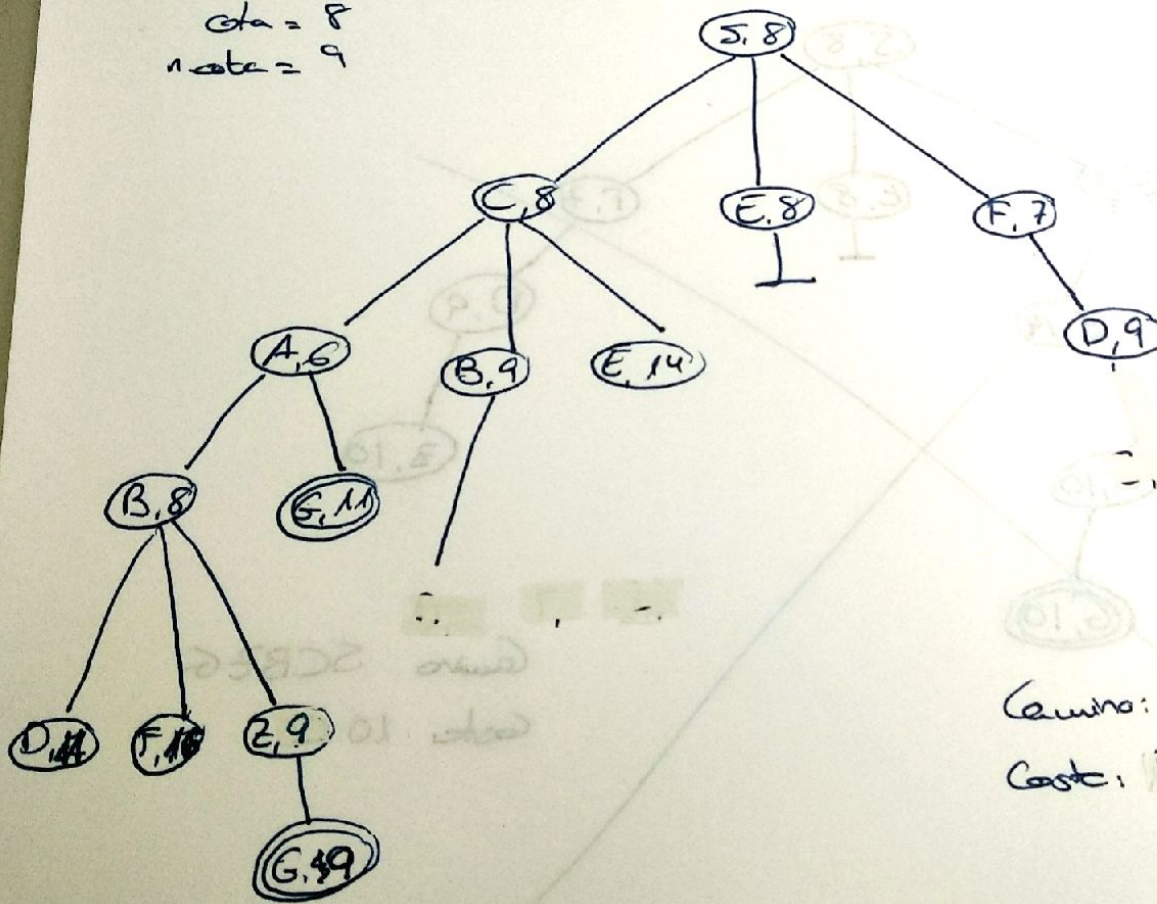 cota = 8
ncota = 9
S,8
C,8
E,8
F,7
A,6
B,9
E,14
D,9
B,8
G,11
E,9
Camino:
Coste: